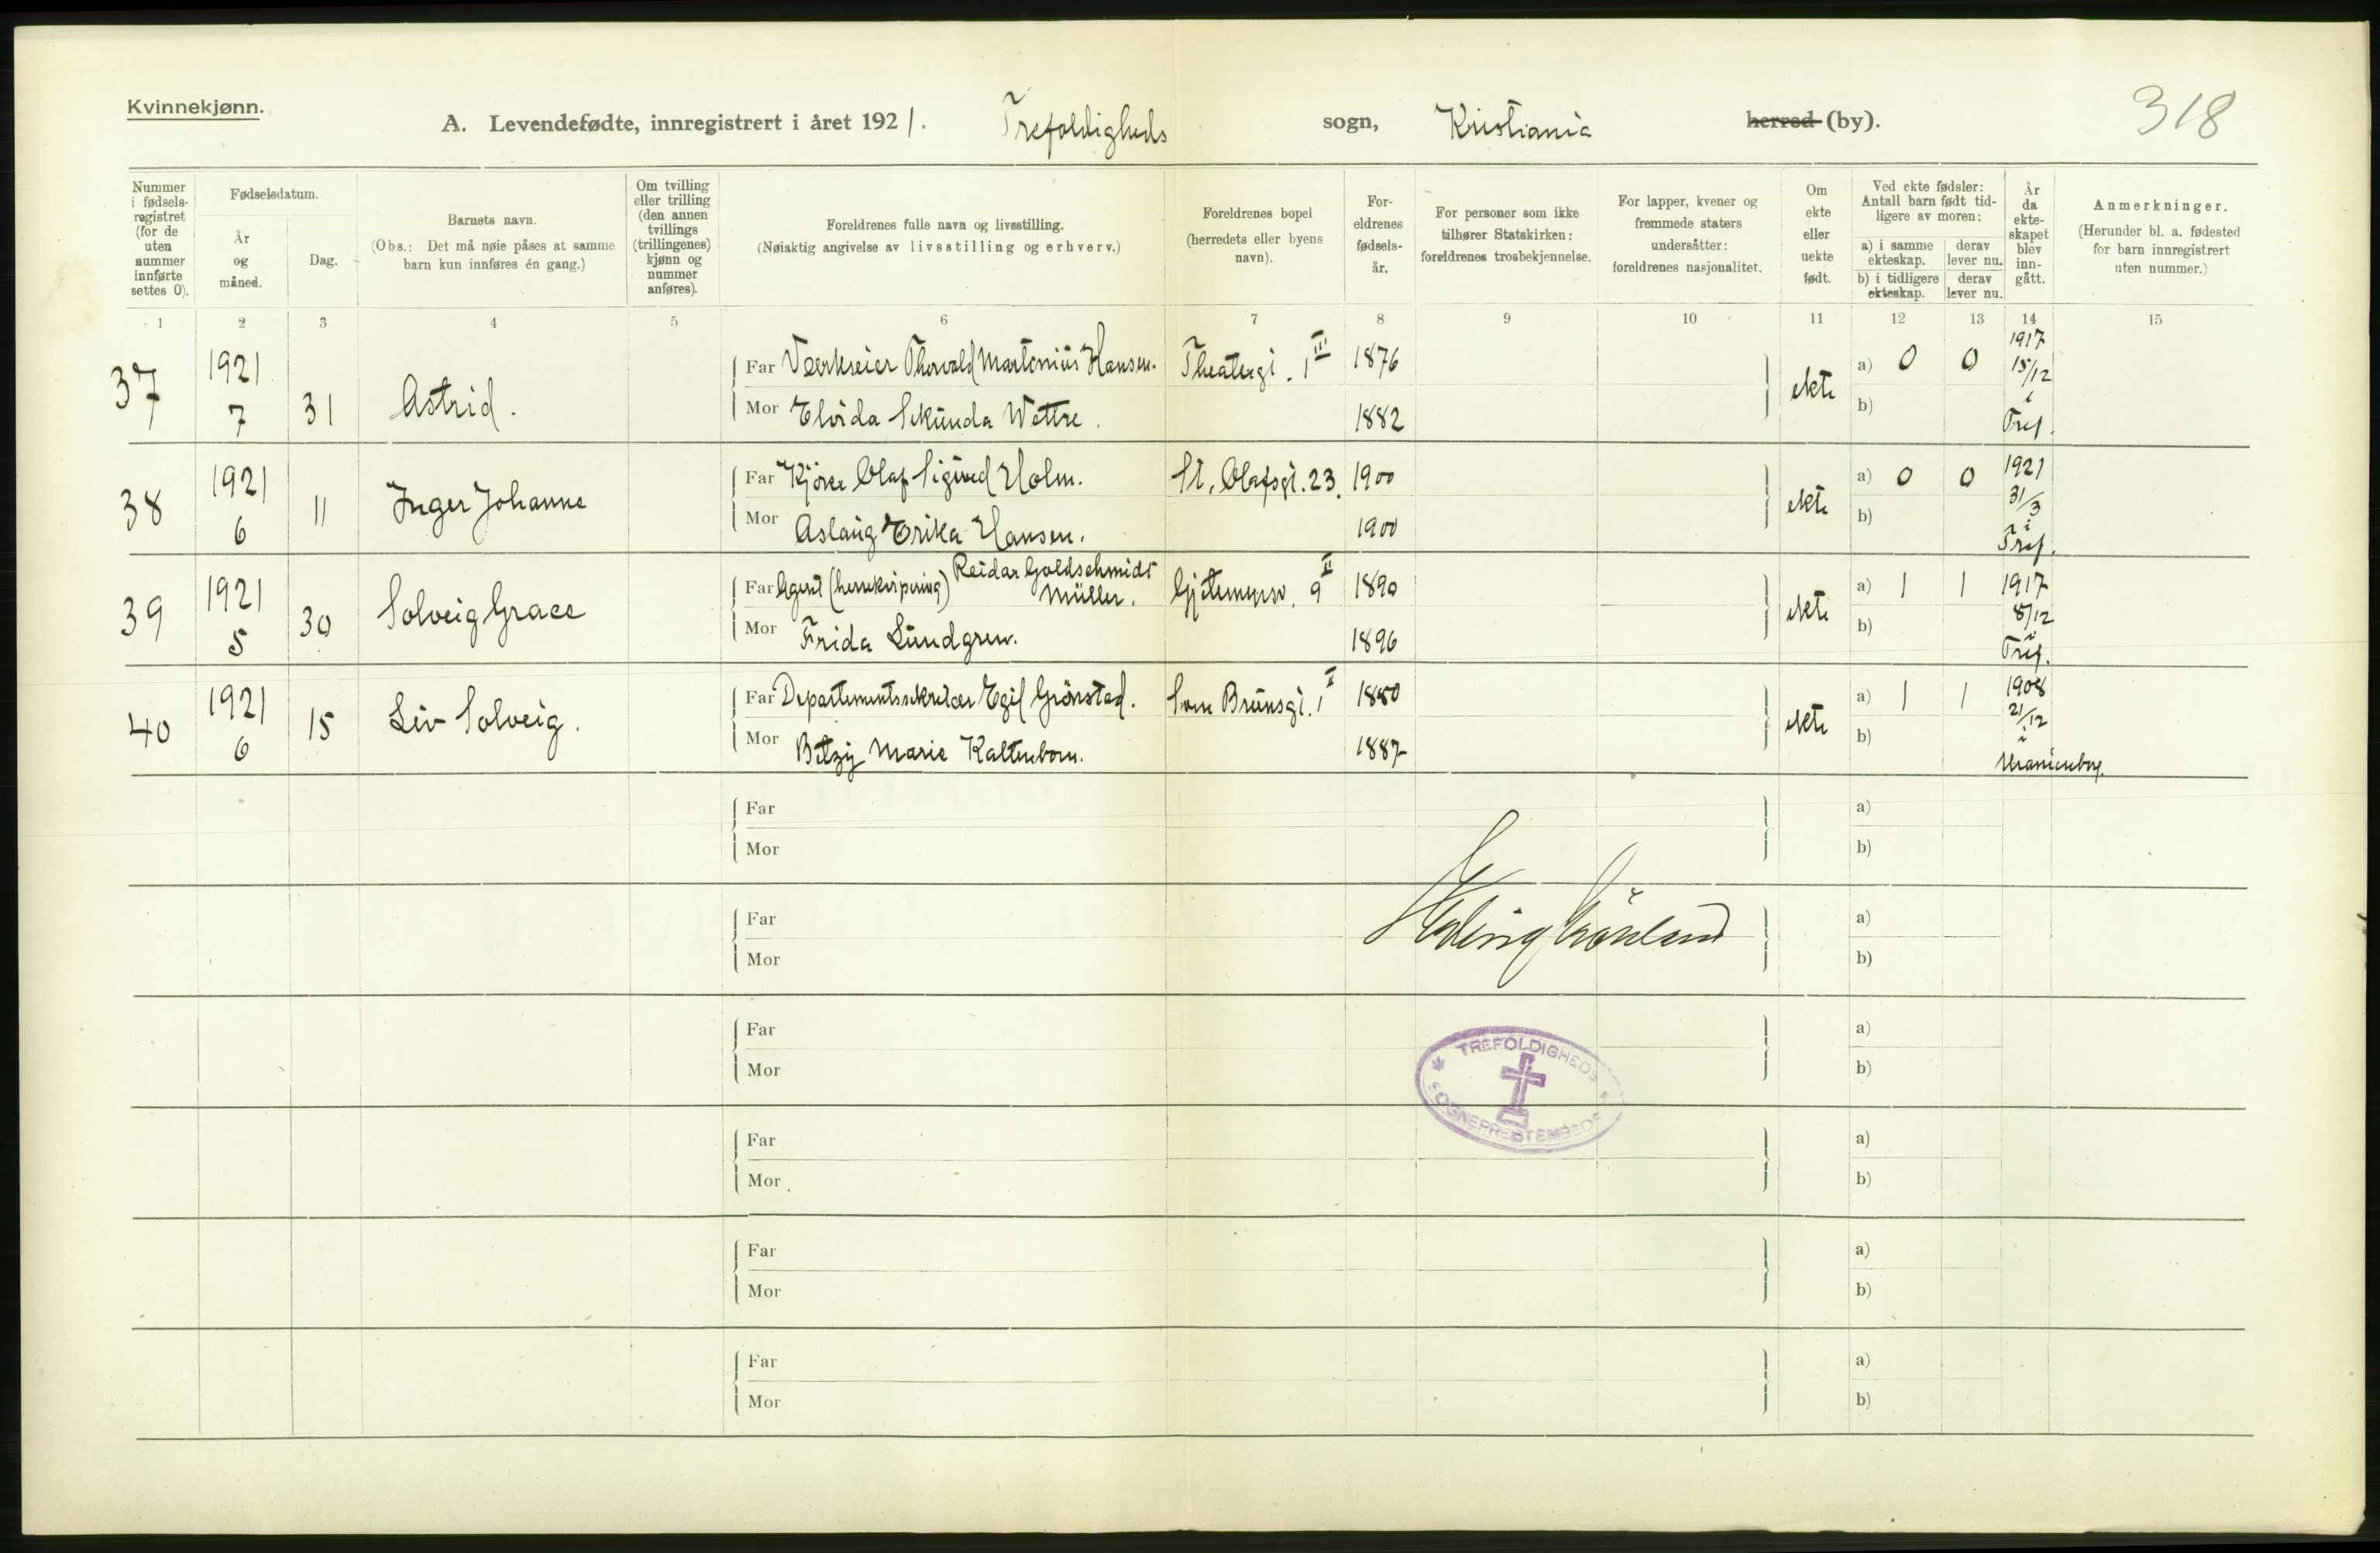 Kvinnekjønn.
A. Levendefødte, innregistrert i året 1921. Trefoldigheds sogn, Kristiania herred (by).
318
Nummer i fødselsregistret (for de uten nummer innførte settes 0).
Fødselsdatum.
År og måned.
Dag.
Barnets navn.
(Obs.: Det må nøie påses at samme barn kun innføres én gang.)
Om tvilling eller trilling (den annen tvillings (trillingenes) kjønn og nummer anføres).
Foreldrenes fulle navn og livsstilling.
(Nøiaktig angivelse av livsstilling og erhverv.)
Foreldrenes bopel (herredets eller byens navn).
Foreldrenes fødselsår.
For personer som ikke tilhører Statskirken: foreldrenes trosbekjennelse.
For lapper, kvener og fremmede staters undersåtter: foreldrenes nasjonalitet.
Om ekte eller uekte født.
Ved ekte fødsler: Antall barn født tidligere av moren:
a) i samme ekteskap.
derav lever nu.
b) i tidligere ekteskap.
derav lever nu.
År da ekteskapet blev inngått.
Anmerkninger.
(Herunder bl. a. fødested for barn innregistrert uten nummer.)
1 2 3 4 5 6 7 8 9 10 11 12 13 14 15
37 1921 7 31 Astrid.
Far Værkseier Thorvald Martonius Hansen. Theatergt. 1 III 1876
Mor Elvida Sekunda Wettre. 1882
ekte a) 0 0 b) 1917 15/12 i Tref.
38 1921 6 11 Inger Johanne
Far Kjører Olaf Sigurd Holm. St. Olafsgt. 23. 1900
Mor Aslaug Erika Hansen. 1900
ekte a) 0 0 b) 1921 31/3 i Tref.
39 1921 5 30 Solveig Grace
Far Agent (herrekvipering) Reidar Goldschmidt Müller. 9 II 1890
Mor Frida Lundgren. 1896
ekte a) 1 1 b) 1917 8/12 i Tref.
40 1921 6 15 Liv Solveig.
Far Departementssekretær Egil Grönstad. Sven Brunsgt. 1 I 1880
Mor Betzy Marie Kaltenborn. 1887
ekte a) 1 1 b) 1908 21/12 i Uranienborg.
Far a)
Mor b)
Far a)
Mor b)
Far a)
Mor b)
TREFOLDIGHEDS
SOGNEPRESTEMBEDE
Far a)
Mor b)
Far a)
Mor b)
Far a)
Mor b)